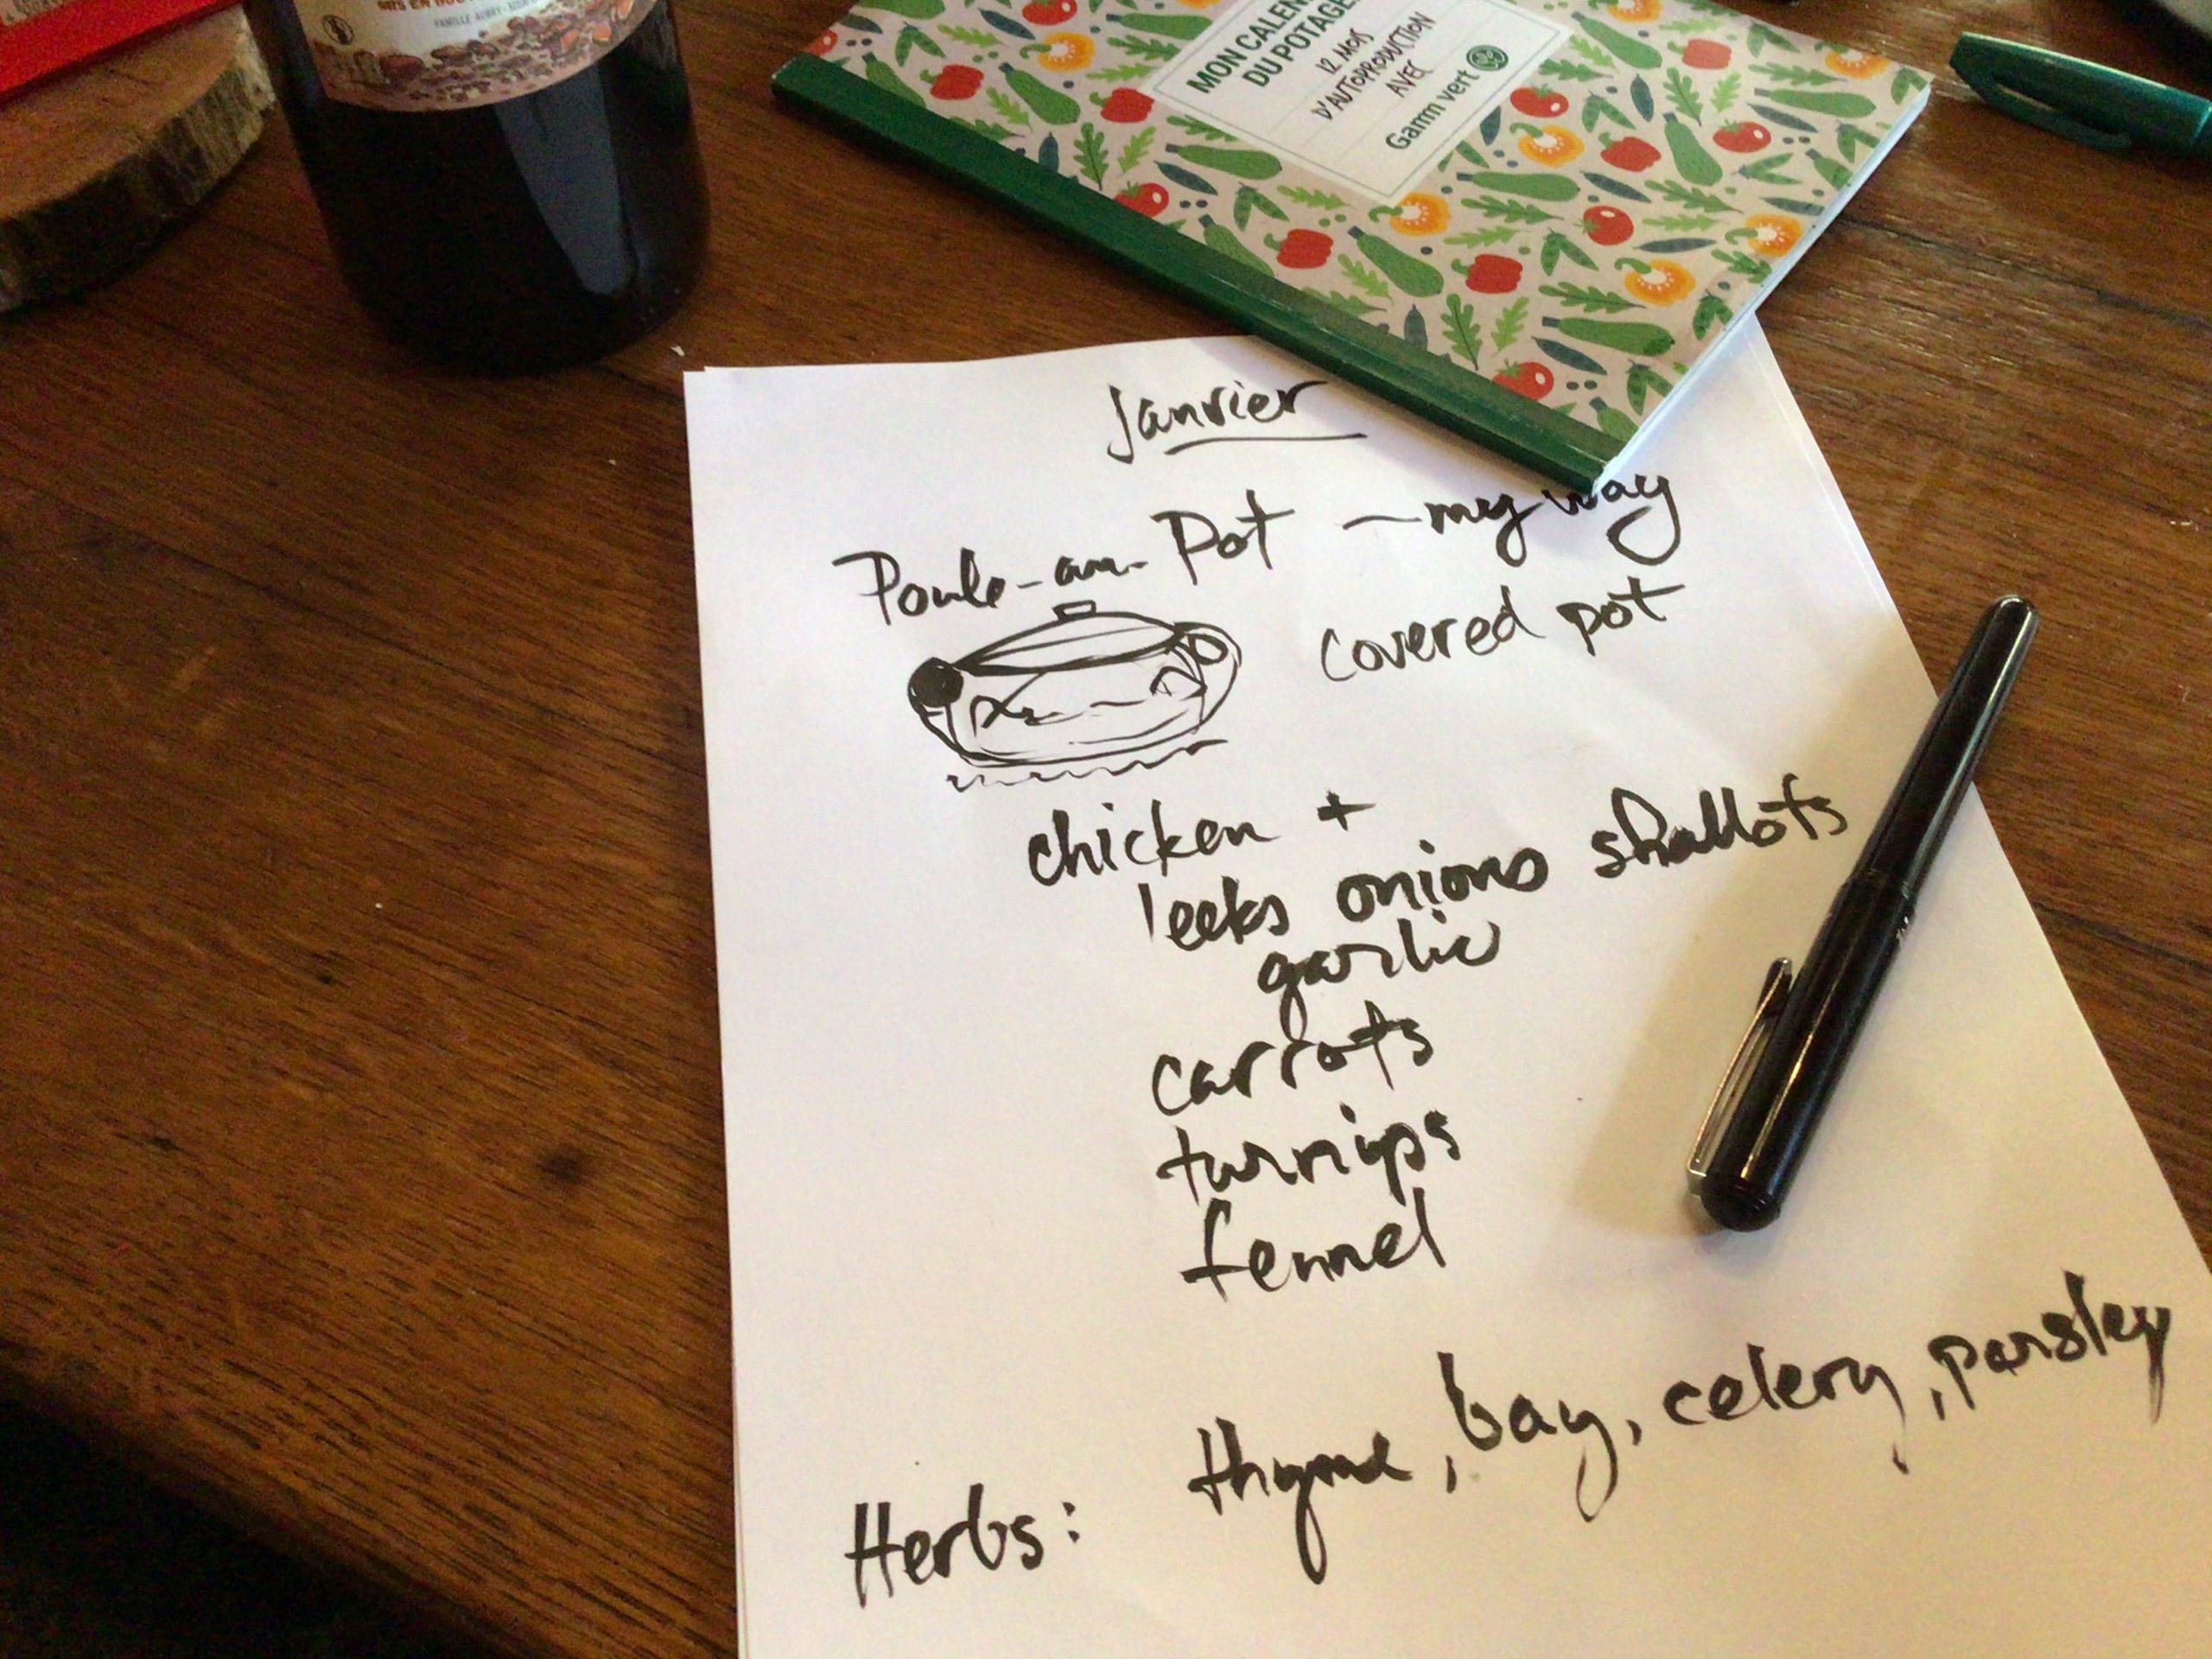 FAMILLE AUBRY
MON CALEN
DU POTAGE
12 MOIS
D'AUTOPRODUCTION
AVEC
Gamm vert
Janvier
Poule-au-Pot — my way
covered pot
chicken +
leeks onions shallots
garlic
carrots
turnips
fennel
Herbs: thyme, bay, celery, parsley